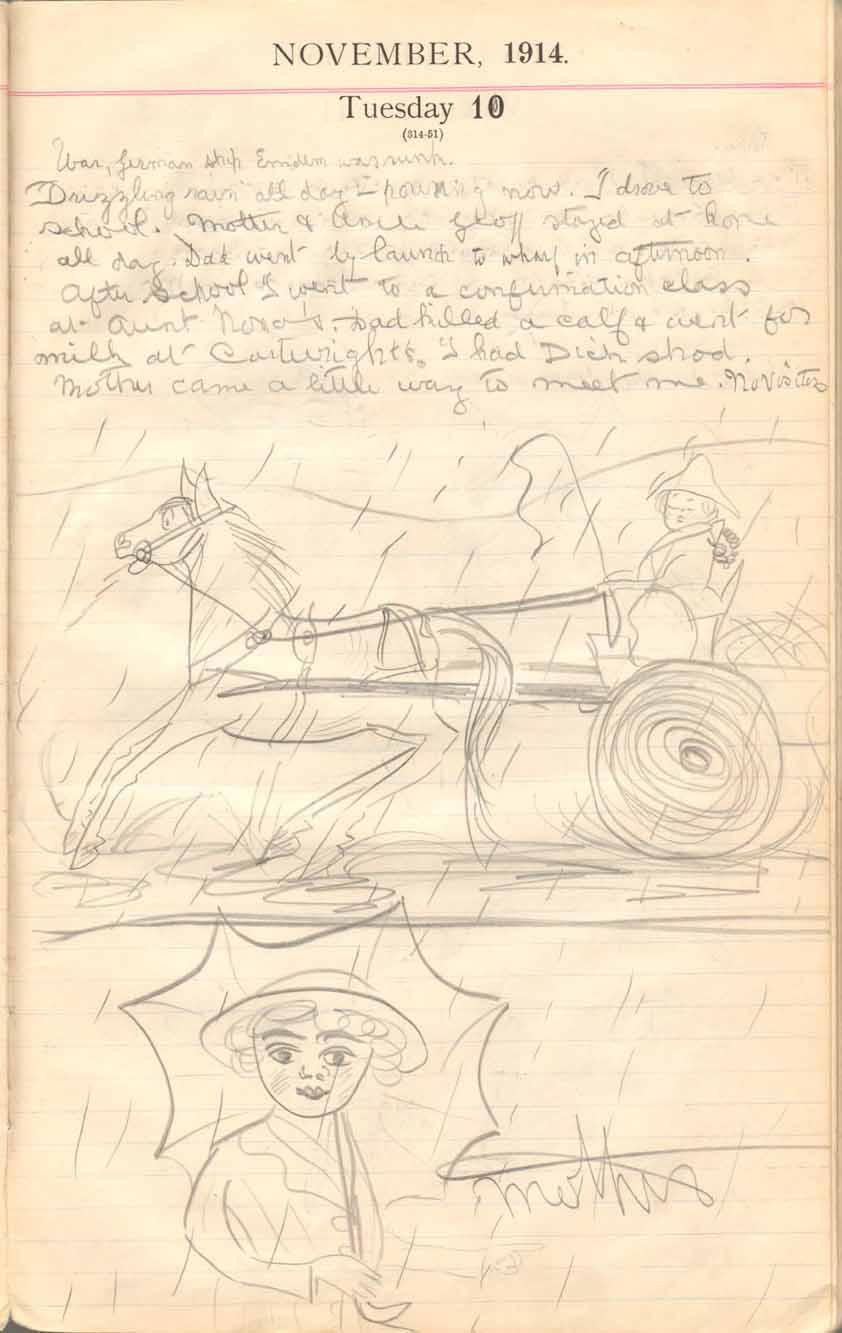 NOVEMBER, 1914.
Tuesday 10
(314-51)
War, German ship Emidem was sunk.
Drizzling rain all day & pouring now. I drove to
school. Mother & Uncle Geoff stayed at home
all day. Dad went by launch to wharf in afternoon.
After School I went to a confirmation class
at Aunt Nora's. Dad killed a calf & went for
milk at Cartwrights. I had Dick shod.
Mother came a little way to meet me. No Visitors
Mother